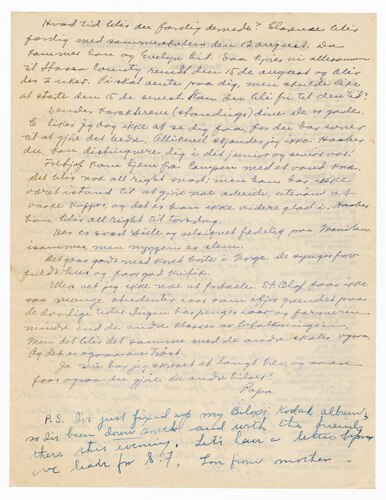 Hvad tid blir du færdig dernede? Clarence blir
færdig med sommerskolen den 12 august. Da
kommer han og Evelyn hit. Saa kjører vi allesammen
til Itasca County, rundt den 15 de august og blir
der 2 uker. Vi skal vente paa dig, men skulde like
at starte den 15 de senest. Kan du bli fri til den tid?
Sender Karakterene (standings) dine. De er gode.
E liker jeg dog ikke at se dig faa, for du har evner
til at gjøre det bedre. Allikevel skjænder jeg ikke. Haaber
du kan distingvere dig i det junior og senior aar.
Fritjof kan hjem fra Campen med et vondt kne.
Det blir nok all right snart, men han har ikke
været istand til at gjøre noe arbeide, utenom at
vaske kopper, og det er han ikke videre glad i. Haaber
han blir all right til torsdag.
Her er svært stille og velsignet fredelig
isammen, men myggen er slem.
Det gaar godt med Koret borte i Norge. De synger for
fuldt hus og faar god kritik.
Ellers vet jeg ikke noe at fortælle. St Olaf faar ikke
saa mange studenter iaar som ifjor grundet paa
de daarlige tider. Ingen har penger iaar, og farmeren
mindre end de andre klasser av befolkningen.
Men det blir det samme med de andre skoler ogsaa.
Og det er ogsaa en trøst.
Ja nu har jeg skrevet et langt brev, og nu maa
faar ogsaa du gjøre det andre bidra!
Papa.
P.S. I've just fixed up my Biloxi Kodak album,
so I've been down south and with the friends
there this evening. Let's have a letter before
we leave for S.7. Love from mother -